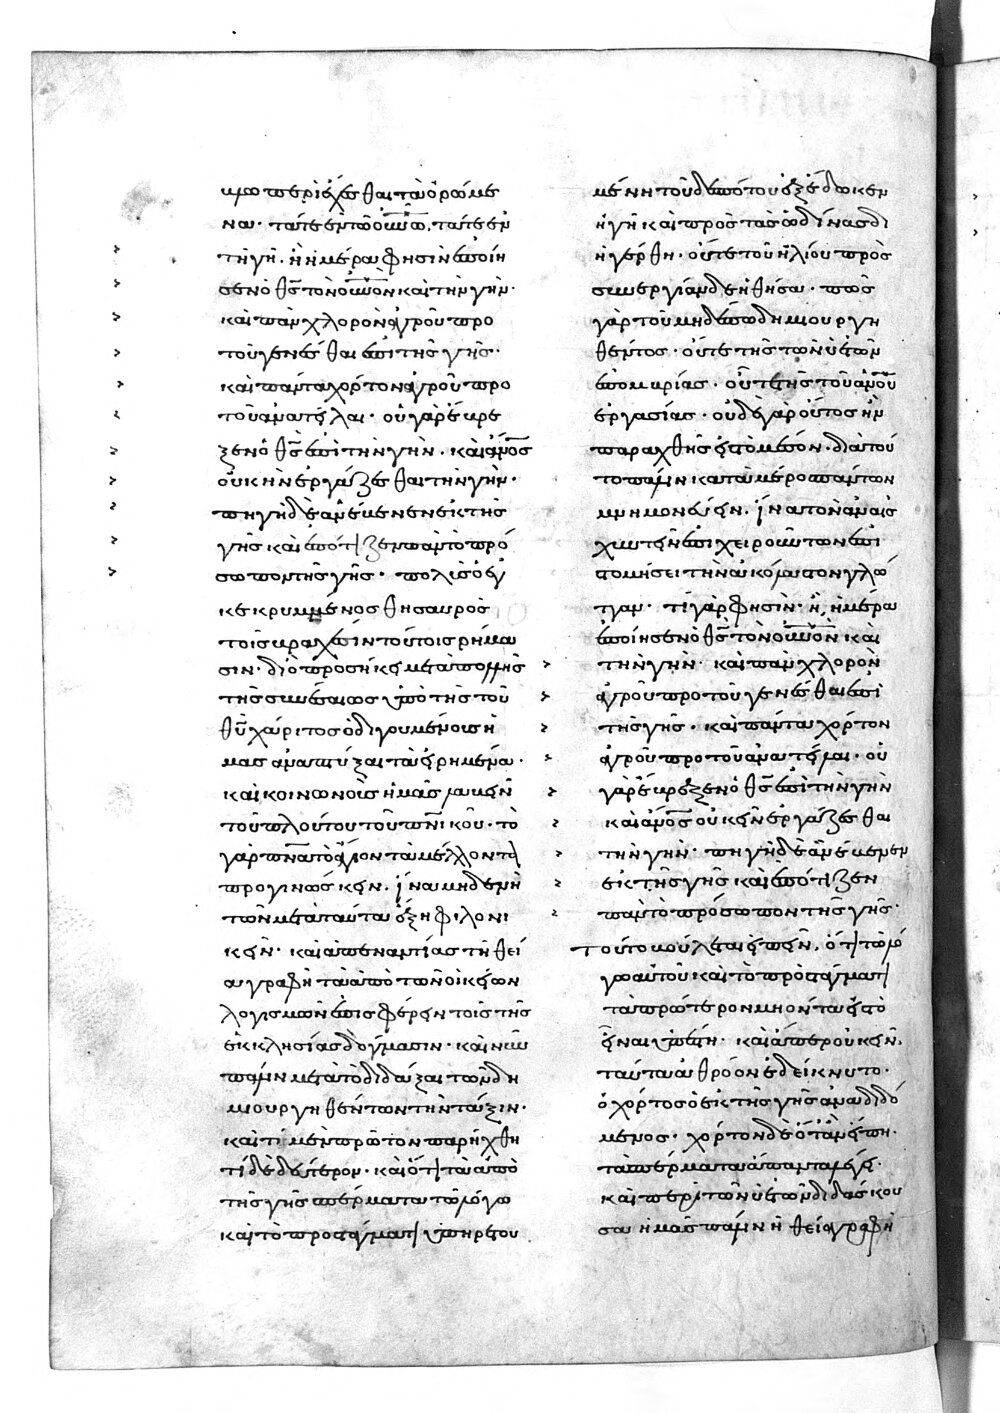 μω περιέχεσθαι τὰ ὁρώμε
να· τά τε ἐν τῶ οὐνῶ, τά τε ἐν
τῆ γῆ. ἧ ἡμέρα φησὶν ἐποίη
σεν ὁ θς τὸν οὐνὸν καὶ τὴν γῆν·
καὶ πᾶν χλορὸν ἀγροῦ προ
τοῦ γενέσθαι ἐπὶ τῆς γῆς·
καὶ πάντα χόρτον ἀγροῦ προ
τοῦ ἀνατεῖλαι· οὐ γὰρ ἔβρε
ξεν ὁ θς ἐπὶ τὴν γῆν. καὶ ἄνος
οὐκ ἦν ἐργάζεσθαι τὴν γῆν·
πηγὴ δὲ ἀνέβαινεν ἐκ τῆς
γῆς καὶ ἐπότιζεν πᾶν τὸ πρό
σωπον τῆς γῆς· πολὺς ὁ ἐγ
κεκρυμμένος θησαυρὸς
τοῖς βραχέσιν τούτοις ῥήμα
σιν· διὸ προσήκει μετὰ πολλῆς
τῆς συνέσεως ὑπὸ τῆς τοῦ
θῦ χάριτος ὁδηγουμένους ἡ
μᾶς ἀναπτύξαι τὰ εἰρημένα·
καὶ κοινωνοὺς ἡμᾶς λαβεῖν
τοῦ πλούτου τοῦ πνικοῦ· τὸ
γὰρ πνα τὸ ἅγιον τὰ μέλλοντα
προγινῶσκον. ἵνα μηδενὶ
τῶν μετὰ ταῦτα ἐξῆ φιλονι
κεῖν· καὶ ἀπεναντίας τῆ θεί
α γραφῆ τὰ ἀπὸ τῶν οἰκείων
λογισμῶν ἐπισφέρειν τοῖς τῆς
ἐκκλησίας δόγμασιν· καὶ νῦν
πάλιν μετὰ τὸ διδάξαι τῶν δη
μιουργηθέντων τὴν τάξιν·
καὶ τί μὲν πρῶτον παρήχθη
τί δὲ δεύτερον· καὶ ὅτι τὰ ἀπὸ
τῆς γῆς σπέρματα τῶ λόγω
καὶ τὸ προστάγματι ὑπηρετου
μένη τοῦ δεσπότου ἐξέδωκεν
ἡ γῆ καὶ πρὸς τὰς ὠδίνας δι
ηγέρθη· οὔτε τοῦ ἡλίου πρὸς
συνεργίαν δεηθῆσα· πῶς
γὰρ τοῦ μηδέπω δημιουργη
θέντος· οὔτε τῆς τῶν ὑετῶν
ἐπομβρίας· οὔτε τῆς τοῦ ἀνου
ἐργασίας· οὐδὲ γὰρ οὗτος ἦν
παραχθεὶς εἰς τὸ μέσον· διὰ τοῦ
το πάλιν κατὰ μέρος πάντων
μνημονεύει. ἵνα τὸν ἀναισ
χυντεῖν ἐπιχειροῦντων ἐπι
στομήσει τὴν ἀκόλαστον γλῶ
τταν· τί γάρ φησιν· ἧ ἡμέρα
ἐποίησεν ὁ θς τὸν οὐνὸν καὶ
τὴν γῆν· καὶ πᾶν χλορὸν
ἀγροῦ προ τοῦ γενέσθαι ἐπὶ
τῆς γῆς· καὶ πάντα χόρτον
ἀγροῦ προ τοῦ ἀνατεῖλαι· οὐ
γὰρ ἔβρεξεν ὁ θς ἐπὶ τὴν γῆν
καὶ ἄνος οὐκ ἦν ἐργάζεσθαι
τὴν γῆν· πηγὴ δὲ ἀνέβαινεν
ἐκ τῆς γῆς καὶ ἐπότιζεν
πᾶν τὸ πρόσωπον τῆς γῆς·
τοῦτο βούλεται εἰπεῖν, ὅτι τῶ λό
γω αὐτοῦ καὶ τὸ προστάγματι
τὰ πρώτερον μὴ ὄντα εἰς τὸ
εἶναι ὑπέστη· καὶ ἅπερ οὐκ ἦν,
ταῦτα ἀθρόον ἐδείκνυτο·
ὁ χόρτος ὁ ἐκ τῆς γῆς ἀναδιδό
μενος· χόρτον δὲ ὅταν εἴπη·
τὰ σπέρματα ἅπαντα λέγει·
καὶ περὶ τῶν ὑετῶν διδάσκου
σα ἡμᾶς πάλιν ἡ θεία γραφὴ